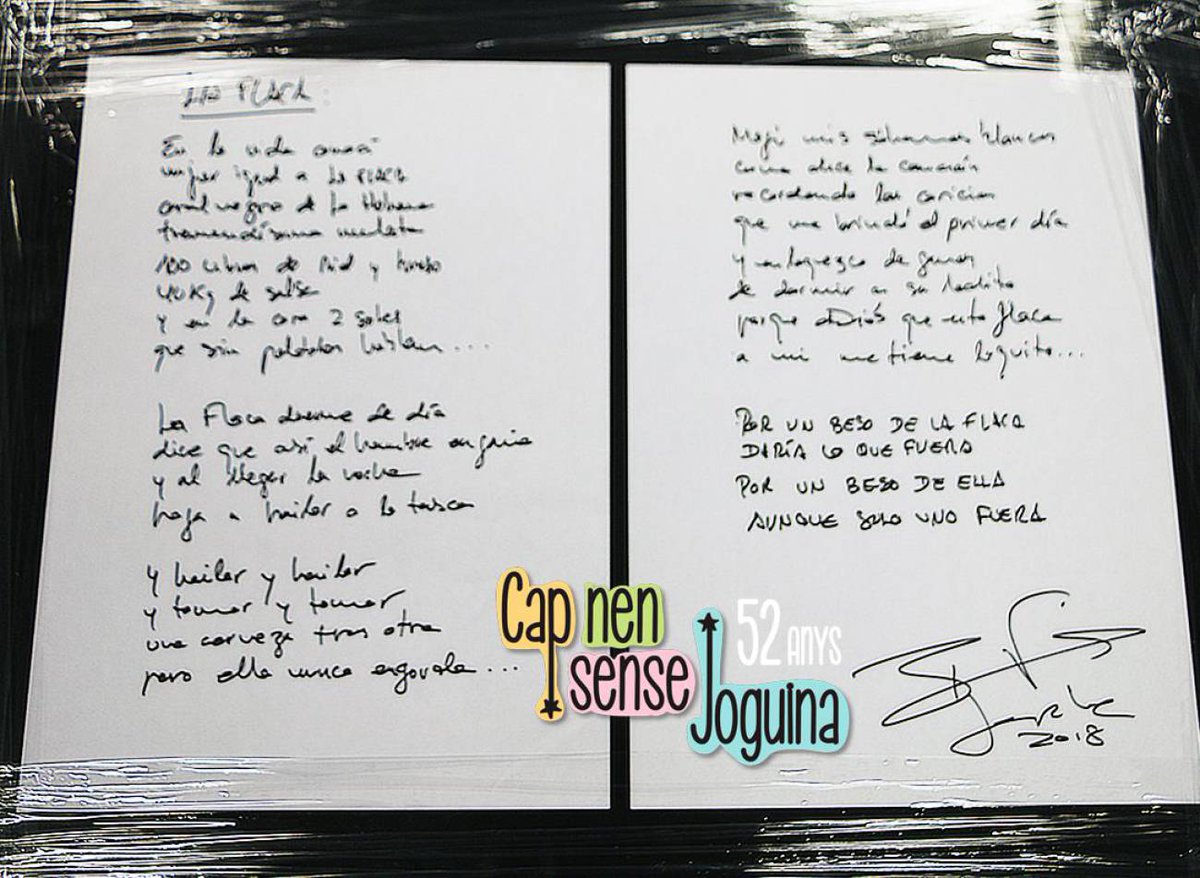 LA FLACA
En la vida conocí
mujer igual a La FLACA
coral negro de La Habana
tremendísima mulata
100 libras de piel y hueso
40 Kg de salsa
y en la cara 2 soles
que sin palabras hablan...
La Flaca duerme de día
dice que así el hambre engaña
y al llegar la noche
baja a bailar a la tasca
y bailar y bailar
y tomar y tomar
una cerveza tras otra
pero ella nunca engorda...
Mojé mis sábanas blancas
como dice la canción
recordando las caricias
que me brindó el primer día
y enloquezco de ganas
de dormir a su ladito
porque Diós que esta flaca
a mi me tiene loquito...
POR UN BESO DE LA FLACA
DARÍA LO QUE FUERA
POR UN BESO DE ELLA
AUNQUE SOLO UNO FUERA
Cap nen
sense
Joguina
52 ANYS
2018